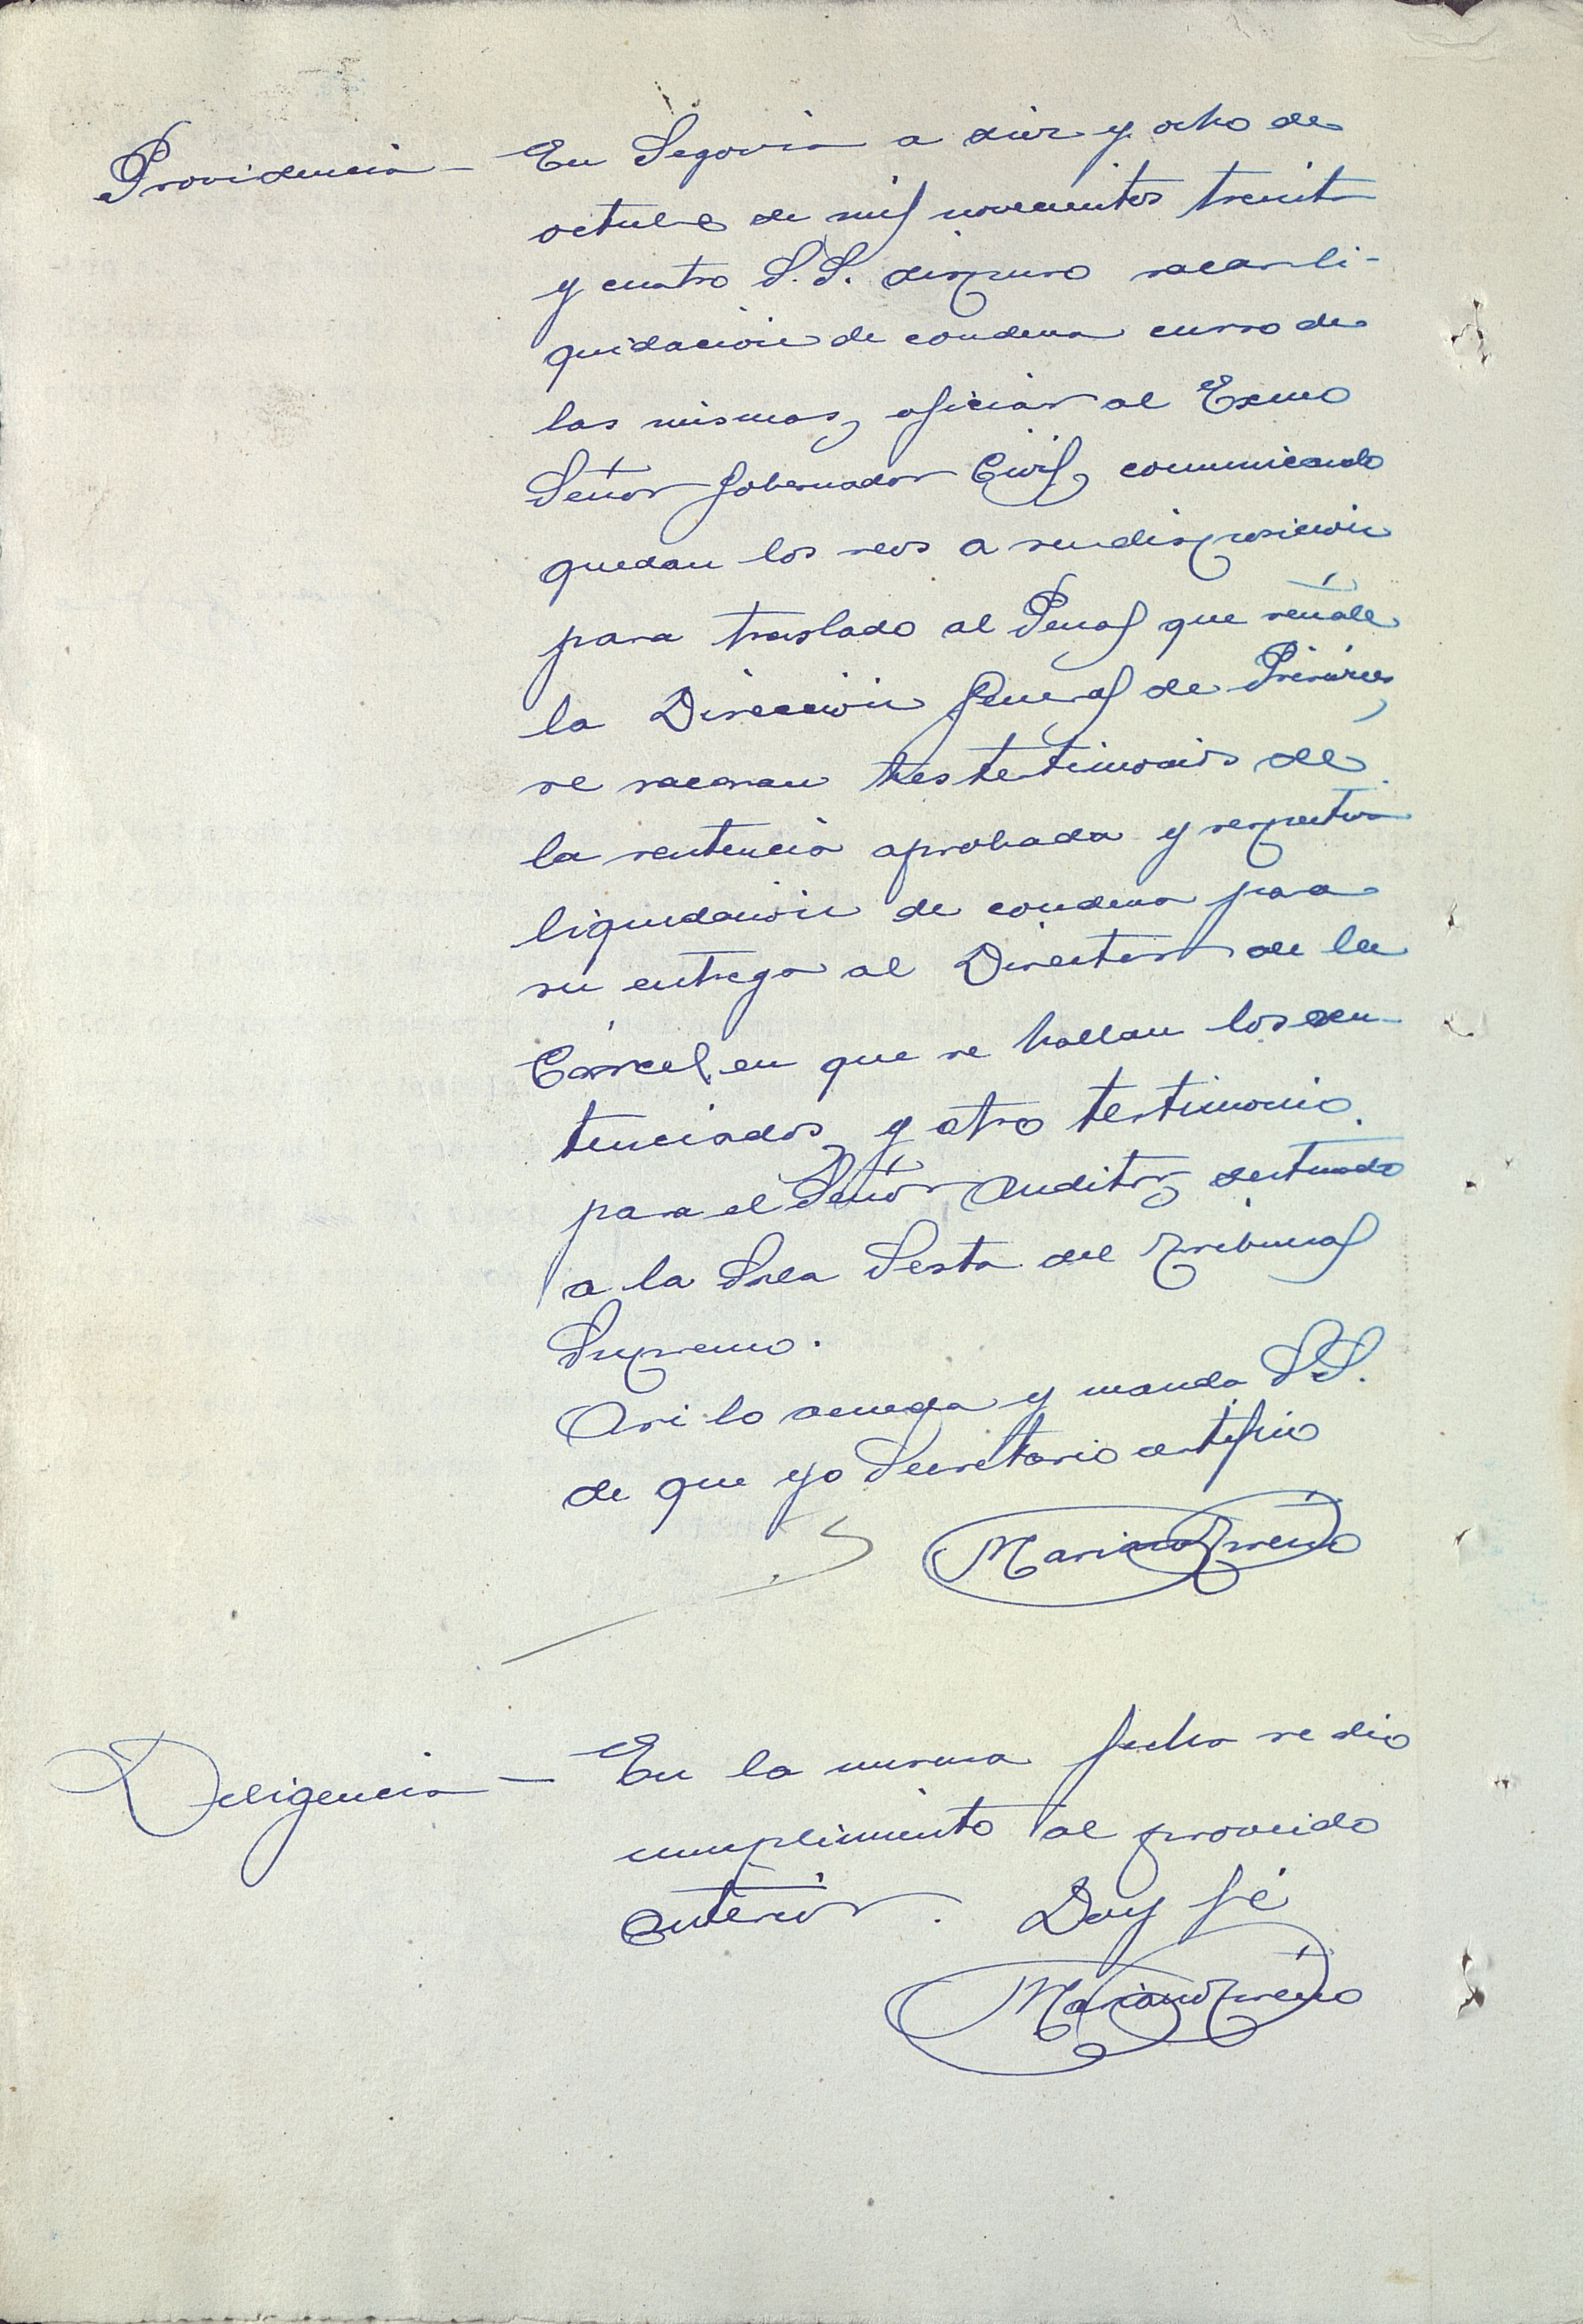 Providencia – En Segovia a diez y ocho de
octubre de mil novecientos treinta
y cuatro S.S. dispuso sacar li-
quidación de condena curso de
las mismas, oficiar al Exmo
Señor Gobernador Civil, comunicando
quedan los reos a su disposición
para traslado al Penal que señale
la Dirección General de Prisiones,
se sacaran tres testimonios de
la sentencia aprobada y respectiva
liquidación de condena para
su entrega al Director de la
Cárcel, en que se hallan los sen-
tenciados, y otro testimonio
para el Señor Auditor, destinado
a la Sala Sesta del Tribunal
Supremo.
Asi lo acuerda y manda S.S.
de que yo Secretario certifico
Mariano
Diligencia – En la misma fecha se dio
cumplimiento al proveido
anterior. Doy fé
Mariano